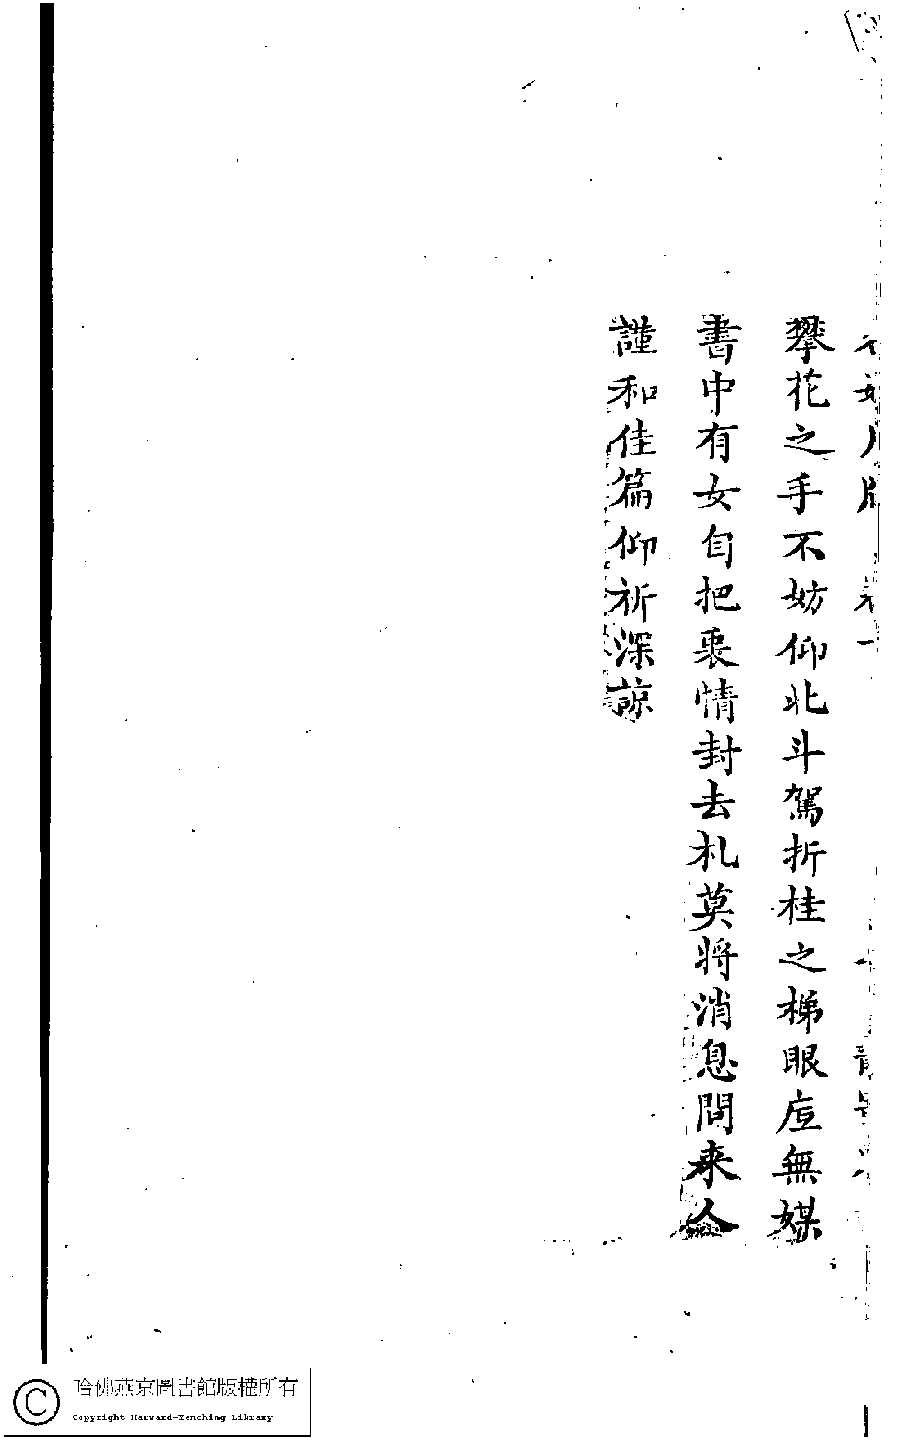 攀花之手不妨仰北斗駕折桂之梯眼底無媒
書中有女自把衷情封去札莫將消息問来人
謹和佳篇仰祈深諒
哈佛燕京圖書館版權所有
Copyright Harvard-Yenching Library